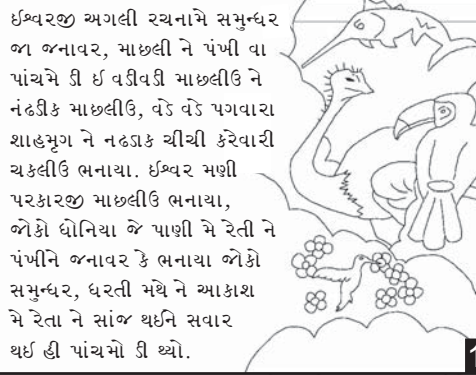 ઈશ્વરજી અગલી રચનામે સમુન્ધર
જા જનાવર, માછલી ને પંખી વા
પાંચમે ડી ઈ વડીવડી માછલીઉ ને
નંઢડીક માછલીઉ, વડે વડે પગવારા
શાહમૃગ ને નઢડાક ચીંચી કરેવારી
ચકલીઉ ભનાયા. ઈશ્વર મણી
પરકારજી માછલીઉ ભનાયા,
જોકો ધોનિયા જે પાણી મે રેતી ને
પંખીને જનાવર કે ભનાયા જોકો
સમુન્ધર, ધરતી મથે ને આકાશ
મે રેતા ને સાંજ થઈને સવાર
થઈ હી પાંચમો ડી થ્યો.